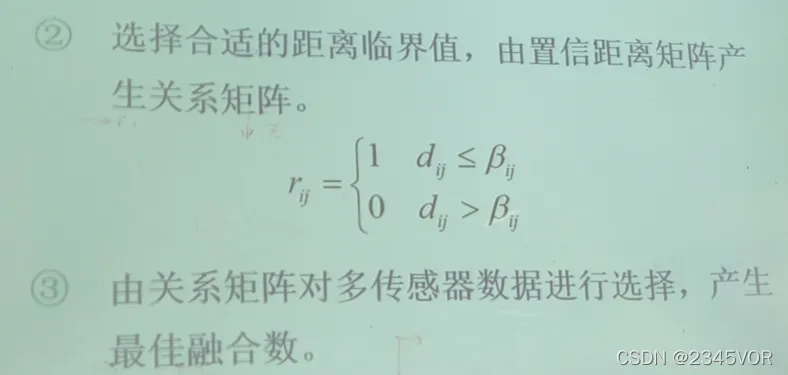 ② 选择合适的距离临界值，由置信距离矩阵产
生关系矩阵。
r_{ij} = { 1 d_{ij} ≤ β_{ij}
0 d_{ij} > β_{ij}
③ 由关系矩阵对多传感器数据进行选择，产生
最佳融合数。
CSDN @2345VOR